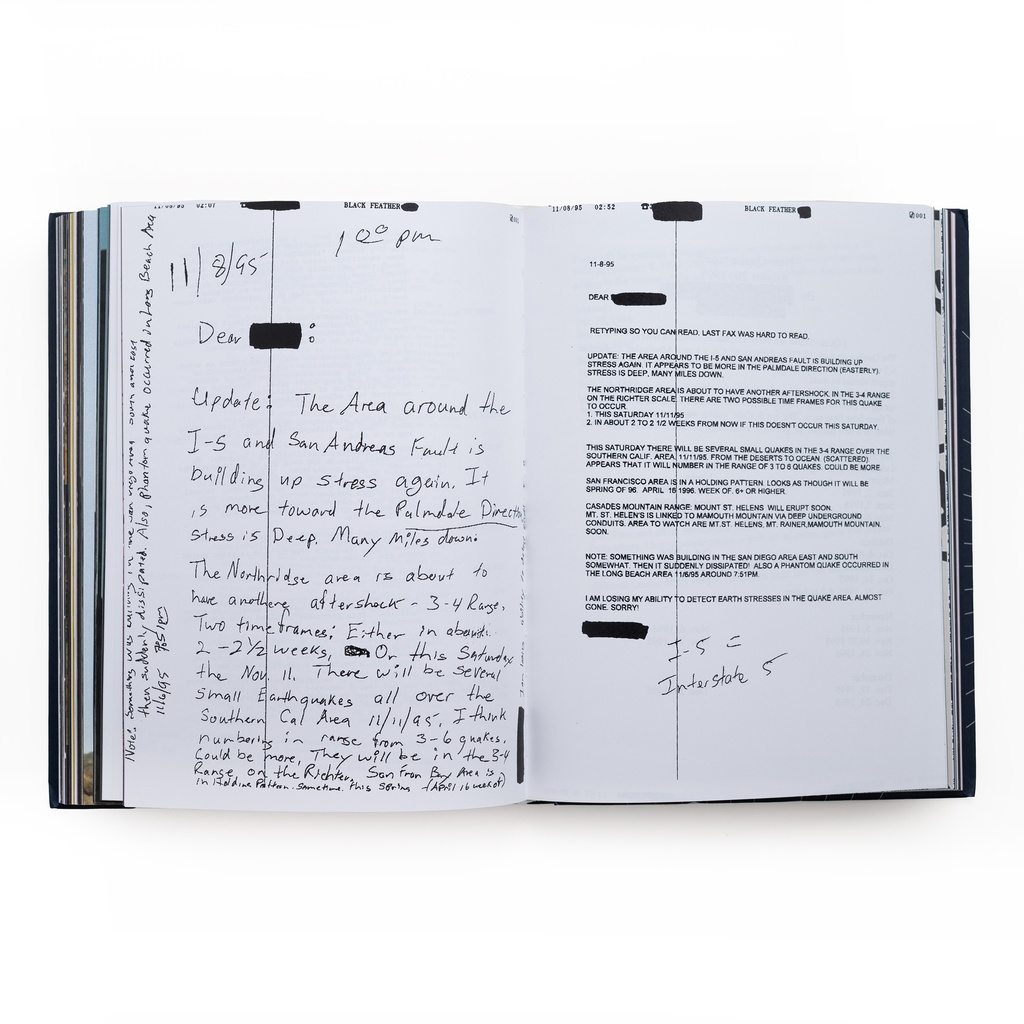 11/08/95 02:07
BLACK FEATHER
001
1 00 pm
11/8/95
Dear :
Update: The Area around the
I-5 and San Andreas Fault is
building up stress again. It
is more toward the Palmdale
stress is Deep. Many Miles down.
The Northridge area is about to
have another aftershock - 3-4 Range.
Two timeframes; Either in about
2 - 2 1/2 weeks, Or this Saturday
the Nov. 11. There will be several
Small Earthquakes all over the
Southern Cal Area 11/11/95. I think
numbering in range from 3-6 quakes.
Could be more. They will be in the 3-4
Range, on the Richter. San Fran Bay Area is
in Holding Pattern. Sometime this Spring (April 16 week of)
Note: Something was
then suddenly dissipated. Also, phantom quake occurred in Long Beach Area
11/6/95
11/08/95 02:52
BLACK FEATHER
001
11-8-95
DEAR
RETYPING SO YOU CAN READ. LAST FAX WAS HARD TO READ.
UPDATE: THE AREA AROUND THE I-5 AND SAN ANDREAS FAULT IS BUILDING UP
STRESS AGAIN. IT APPEARS TO BE MORE IN THE PALMDALE DIRECTION (EASTERLY).
STRESS IS DEEP, MANY MILES DOWN.
THE NORTHRIDGE AREA IS ABOUT TO HAVE ANOTHER AFTERSHOCK. IN THE 3-4 RANGE
ON THE RICHTER SCALE. THERE ARE TWO POSSIBLE TIME FRAMES FOR THIS QUAKE
TO OCCUR.
1. THIS SATURDAY 11/11/95
2. IN ABOUT 2 TO 2 1/2 WEEKS FROM NOW IF THIS DOESN'T OCCUR THIS SATURDAY.
THIS SATURDAY THERE WILL BE SEVERAL SMALL QUAKES IN THE 3-4 RANGE OVER THE
SOUTHERN CALIF. AREA. 11/11/95. FROM THE DESERTS TO OCEAN. (SCATTERED).
APPEARS THAT IT WILL NUMBER IN THE RANGE OF 3 TO 6 QUAKES. COULD BE MORE.
SAN FRANCISCO AREA IS IN A HOLDING PATTERN. LOOKS AS THOUGH IT WILL BE
SPRING OF 96. APRIL 16 1996. WEEK OF. 6+ OR HIGHER.
CASADES MOUNTAIN RANGE: MOUNT ST. HELENS WILL ERUPT SOON.
MT. ST. HELEN'S IS LINKED TO MAMOUTH MOUNTAIN VIA DEEP UNDERGROUND
CONDUITS. AREA TO WATCH ARE MT.ST. HELENS, MT. RAINER,MAMOUTH MOUNTAIN.
SOON.
NOTE: SOMETHING WAS BUILDING IN THE SAN DIEGO AREA EAST AND SOUTH
SOMEWHAT. THEN IT SUDDENLY DISSIPATED! ALSO A PHANTOM QUAKE OCCURRED IN
THE LONG BEACH AREA 11/6/95 AROUND 7:51PM.
I AM LOSING MY ABILITY TO DETECT EARTH STRESSES IN THE QUAKE AREA. ALMOST
GONE. SORRY!
I-5 =
Interstate 5